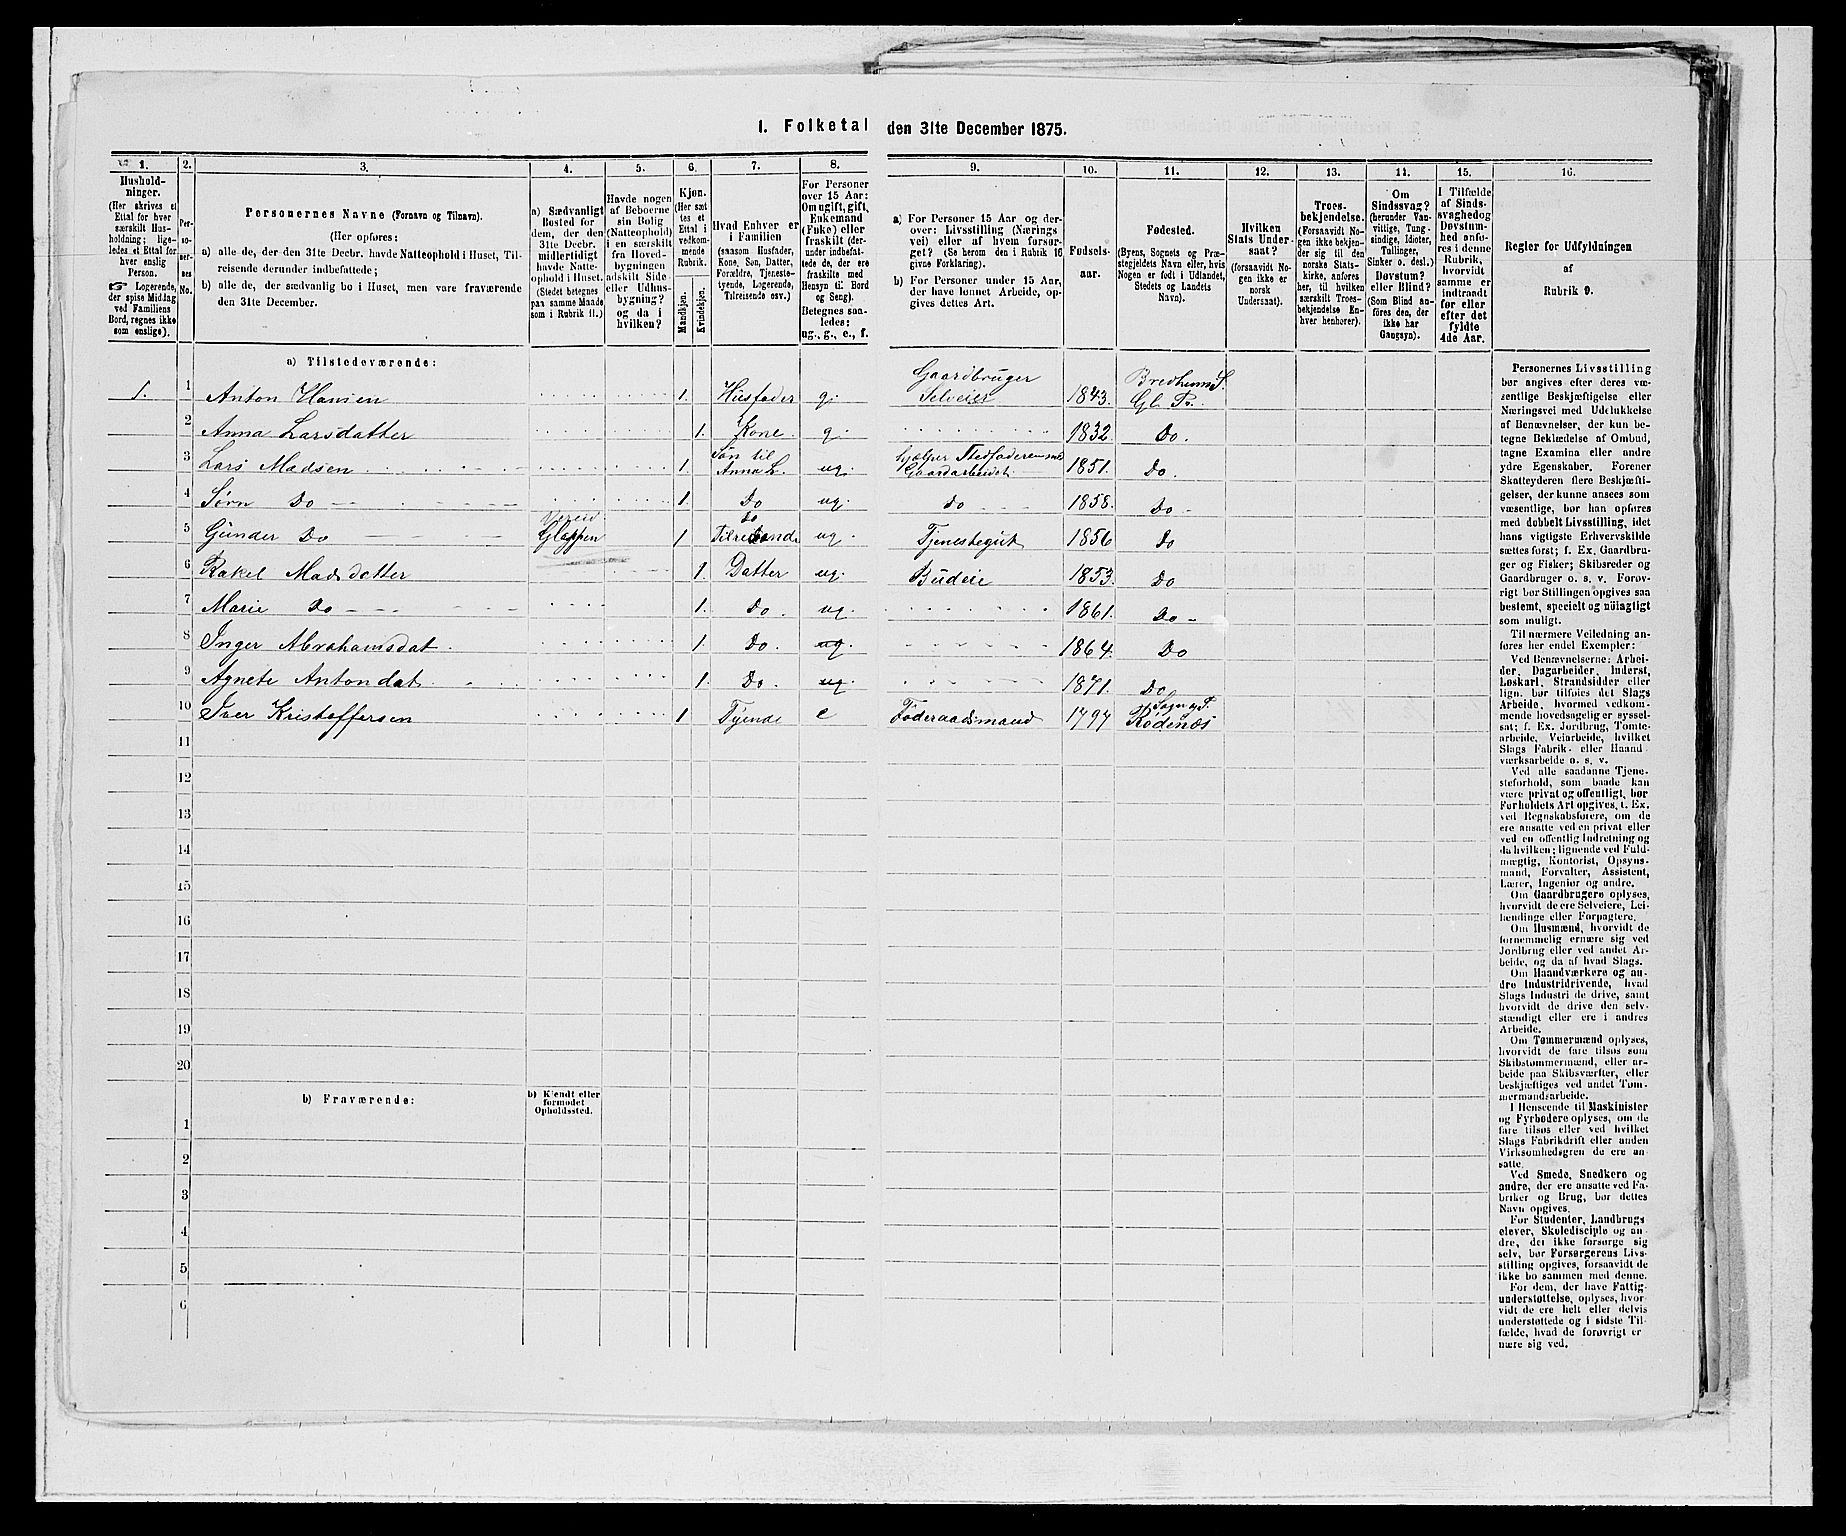 I. Folketal den 31te December 1875.
1. 2. 3. 4. 5. 6. 7. 8. 9. 10. 11. 12. 13. 14. 15. 16.
Hushold-
ninger.
(Her skrives et
Ettal for hver
særskilt Hus-
holdning; lige-
ledes et Ettal for
hver enslig
Person.
Logerende,
der spise Middag
ved Familiens
Bord, regnes ikke
som enslige).
Per-
so-
ner-
nes
No.
Personernes Navne (Fornavn og Tilnavn).
(Her opføres:
a) alle de, der den 31te Decbr. havde Natteophold i Huset, Til-
reisende derunder indbefattede;
b) alle de, der sædvanlig bo i Huset, men vare fraværende
den 31te December.
a) Sædvanligt
Bosted for
dem, der den
31te Decbr.
midlertidigt
havde Natte-
ophold i Huset.
(Stedet betegnes
paa samme Maade
som i Rubrik 11.)
Havde nogen
af Beboerne
sin Bolig
(Natteophold)
i en særskilt
fra Hoved-
bygningen
adskilt Side
eller Udhus-
bygning?
og da i
hvilken?
Kjøn.
(Her sæt
tes et
Ettal i
vedkom-
mende
Rubrik.
Mandkjøn.
Kvindekjøn.
Hvad Enhver er
i Familien
(saasom Husfader,
Kone, Søn, Datter,
Forældre, Tjeneste-
tyende, Logerende,
Tilreisende osv.)
For Personer
over 15 Aar:
Om ugift, gift,
Enkemand
(Enke) eller
fraskilt (der-
under indbefat-
tede de, der ere
fraskilte med
Hensyn til Bord
og Seng).
Betegnes saa-
ledes:
ug., g., e., f.
a) For Personer 15 Aar og der-
over: Livsstilling (Nærings
vei) eller af hvem forsør-
get? (Se herom den i Rubrik 16
givne Forklaring).
b) For Personer under 15 Aar,
der have lønnet Arbeide, op-
gives dettes Art.
Fødsels-
aar.
Fødested.
(Byens, Sognets og Præ-
stegjeldets Navn eller, hvis
Nogen er født i Udlandet,
Stedets og Landets
Navn).
Hvilken
Stats Under-
saat?
(forsaavidt No-
gen ikke er
norsk
Undersaat).
Troes-
bekjendelse.
(Forsaavidt No-
gen ikke bekjen-
der sig til den
norske Stats-
kirke, anføres
her, til hvilken
særskilt Troes-
bekjendelse En-
hver henhører).
Om
Sindssvag?
(herunder Van-
vittige, Tung-
sindige, Idioter,
Tullinger,
Sinker o. desl.)
Døvstum?
eller Blind?
(Som Blind an-
føres den, der
ikke har
Gangsyn).
I Tilfælde
af Sinds-
svaghed og
Døvstum-
hed anfø-
res i denne
Rubrik,
hvorvidt
samme er
indtraadt
før eller
efter det
fyldte
4de Aar.
Regler for Udfyldningen
af
Rubrik 9.
a) Tilstedeværende:
1. 1 Anton Hansen 1. Husfader g. Gaardbruger Selveier 1843. Bredhums S. Gl. Pr.
2 Anna Larsdatter 1. Kone. g. 1832 Do.
3 Lars Madsen 1. Søn til Anna L. ug. hjælper Stedfaderen med Gaardarbeidet 1851. Do.
4 Sørn Do 1. Do ug. do 1858. Do
5 Gunder Do Glappen 1 do Tilreisende ug. Tjenestegut 1856 Do
6 Rakel Madsdatter 1. Datter ug. Budeie 1853. Do
7 Marie Do 1. Do. ug. 1861. Do
8 Inger Abrahamsdat. 1. Do. ug. 1864. Do
9 Agnete Antondat 1. Do. ug. 1871. Do
10 Iver Kristoffersen 1 Tyende e Føderaadsmand 1797 Rødenæs Sogn og P.
11
12
13
14
15
16
17
18
19
20
b) Fraværende:
b) Kjendt eller
formodet
Opholdssted.
1
2
3
4
5
6
Personernes Livsstilling
bør angives efter deres væ-
sentlige Beskjæftigelse eller
Næringsvei med Udelukkelse
af Benævnelser, der kun be-
tegne Beklædelse af Ombud,
tagne Examina eller andre
ydre Egenskaber. Forener
Skatteyderen flere Beskjæfti-
gelser, der kunne ansees som
væsentlige, bør han opføres
med dobbelt Livsstilling, idet
hans vigtigste Erhvervskilde
sættes først; f. Ex. Gaardbru-
ger og Fisker; Skibsreder og
Gaardbruger o. s. v. Forøv-
rigt bør Stillingen opgives saa
bestemt, specielt og nøiagtigt
som muligt.
Til nærmere Veiledning an-
føres her endel Exempler:
Ved Benævnelserne: Arbei-
der, Dagarbeider, Inderst,
Løskarl, Strandsidder eller
lign. bør tilføies det Slags
Arbeide, hvormed vedkom-
mende hovedsagelig er syssel-
sat; f. Ex. Jordbrug, Tomte-
arbeide, Veiarbeide, hvilket
Slags Fabrik- eller Haand
værksarbeide o. s. v.
Ved alle saadanne Tjene-
steforhold, som baade kan
være privat og offentligt, bør
Forholdets Art opgives, t. Ex.
ved Regnskabsførere, om de
ere ansatte ved en privat eller
ved en offentlig Indretning og
da hvilken; lignende ved Fuld-
mægtig, Kontorist, Opsyns-
mand, Forvalter, Assistent,
Lærer, Ingeniør og andre.
Om Gaardbrugere oplyses,
hvorvidt de ere Selveiere, Lei-
lændinge eller Forpagtere.
Om Husmænd, hvorvidt de
fornemmelig ernære sig ved
Jordbrug eller ved andet Ar-
beide, og da af hvad Slags.
Om Haandværkere og an-
dre Industridrivende, hvad
Slags Industri de drive, samt
hvorvidt de drive den selv-
stændigt eller ere i andres
Arbeide.
Om Tømmermænd oplyses,
hvorvidt de fare tilsøs som
Skibstømmermænd, eller ar-
beide paa Skibsværfter, eller
beskjæftiges ved andet Tøm-
mermandsarbeide.
I Henseende til Maskinister
og Fyrbødere oplyses, om de
fare tilsøs eller ved hvilket
Slags Fabrikdrift eller anden
Virksomhedsgren de ere an-
satte.
Ved Smede, Snedkere og
andre, der ere ansatte ved Fa-
briker og Brug, bør dettes
Navn opgives.
For Studenter, Landbrugs
elever, Skoledisciple og an-
dre, der ikke forsørge sig
selv, bør Forsørgerens Livs-
stilling opgives, forsaavidt de
ikke bo sammen med denne.
For dem, der have Fattig-
understøttelse, oplyses, hvor-
vidt de ere helt eller delvis
understøttede og i sidste Til-
fælde, hvad de forøvrigt er
nære sig ved.